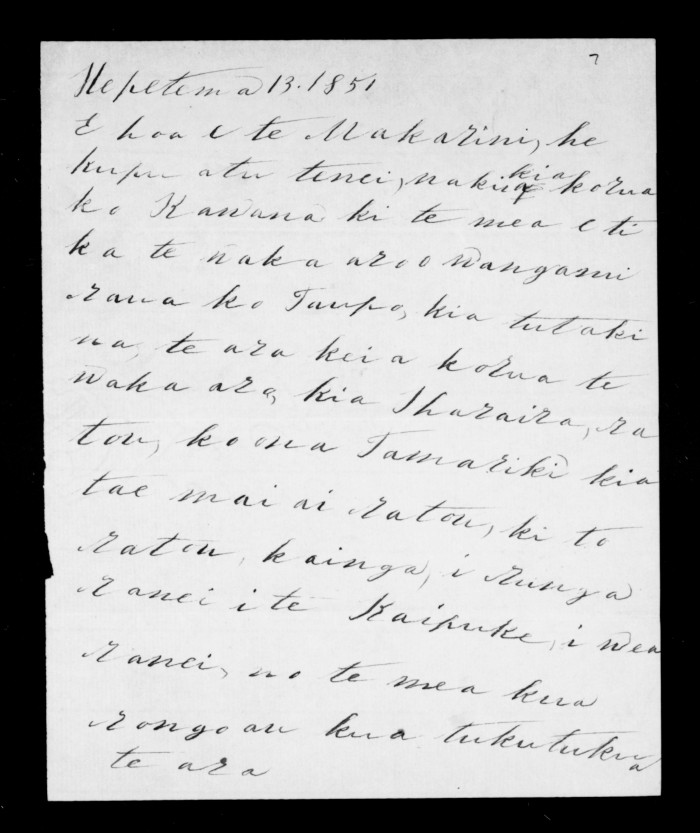 7
Hepetema 13. 1851
E hoa e te Makarini, he
kupu atu tenei, naku kia korua
ko Kawana ki te mea e ti
ka te waka aroo Wanganui
raua ko Taupo, kia tutaki
na, te ara kei a korua te
waka aro, kia Iharaira, ra
tou, ko ona Tamariki kia
tae mai ai ratou, ki to
ratou, kainga, i runga
ranei i te Kaipuke, i wea
ranei, no te mea kua
rongo au kua tukutukua
te ara